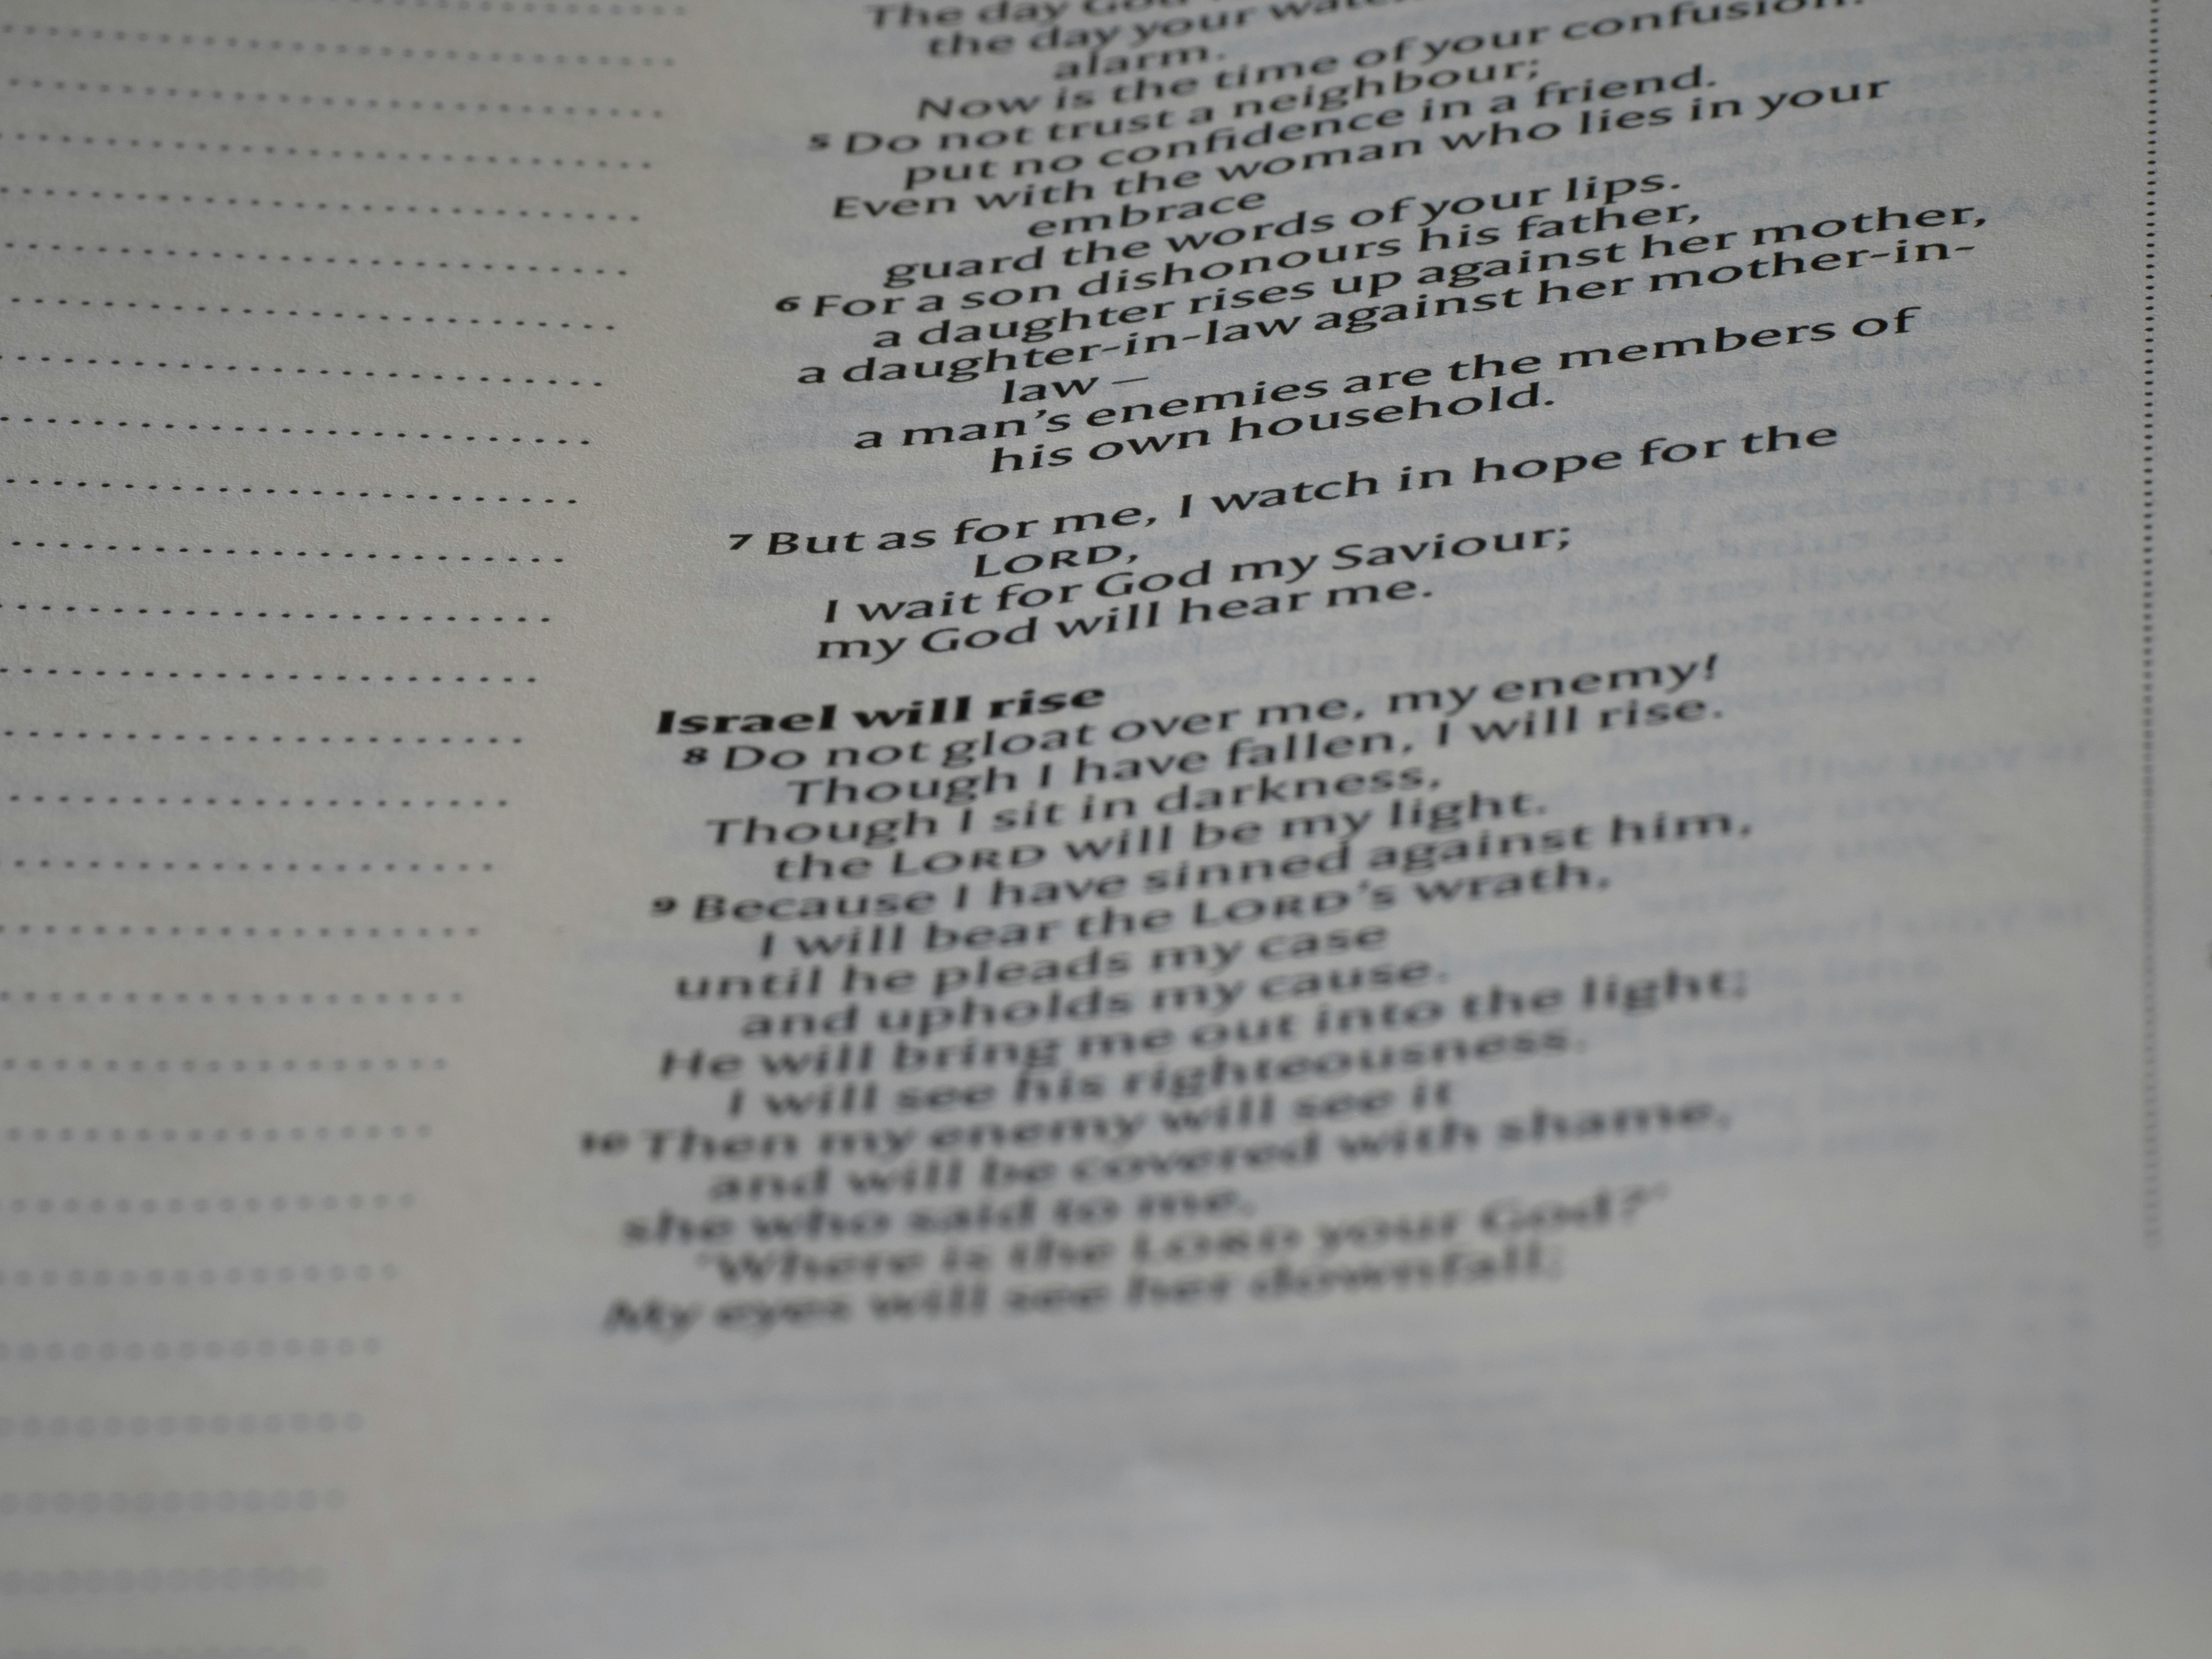 The day God
the day your
alarm.
Now is the time of your confusion.
5 Do not trust a neighbour;
put no confidence in a friend.
Even with the woman who lies in your
embrace
guard the words of your lips.
6 For a son dishonours his father,
a daughter rises up against her mother,
a daughter-in-law against her mother-in-
law –
a man’s enemies are the members of
his own household.
7 But as for me, I watch in hope for the
LORD,
I wait for God my Saviour;
my God will hear me.
Israel will rise
8 Do not gloat over me, my enemy!
Though I have fallen, I will rise.
Though I sit in darkness,
the LORD will be my light.
9 Because I have sinned against him,
I will bear the LORD’s wrath,
until he pleads my case
and upholds my cause.
He will bring me out into the light;
I will see his righteousness.
10 Then my enemy will see it
and will be covered with shame,
she who said to me,
‘Where is the LORD your God?’
My eyes will see her downfall;